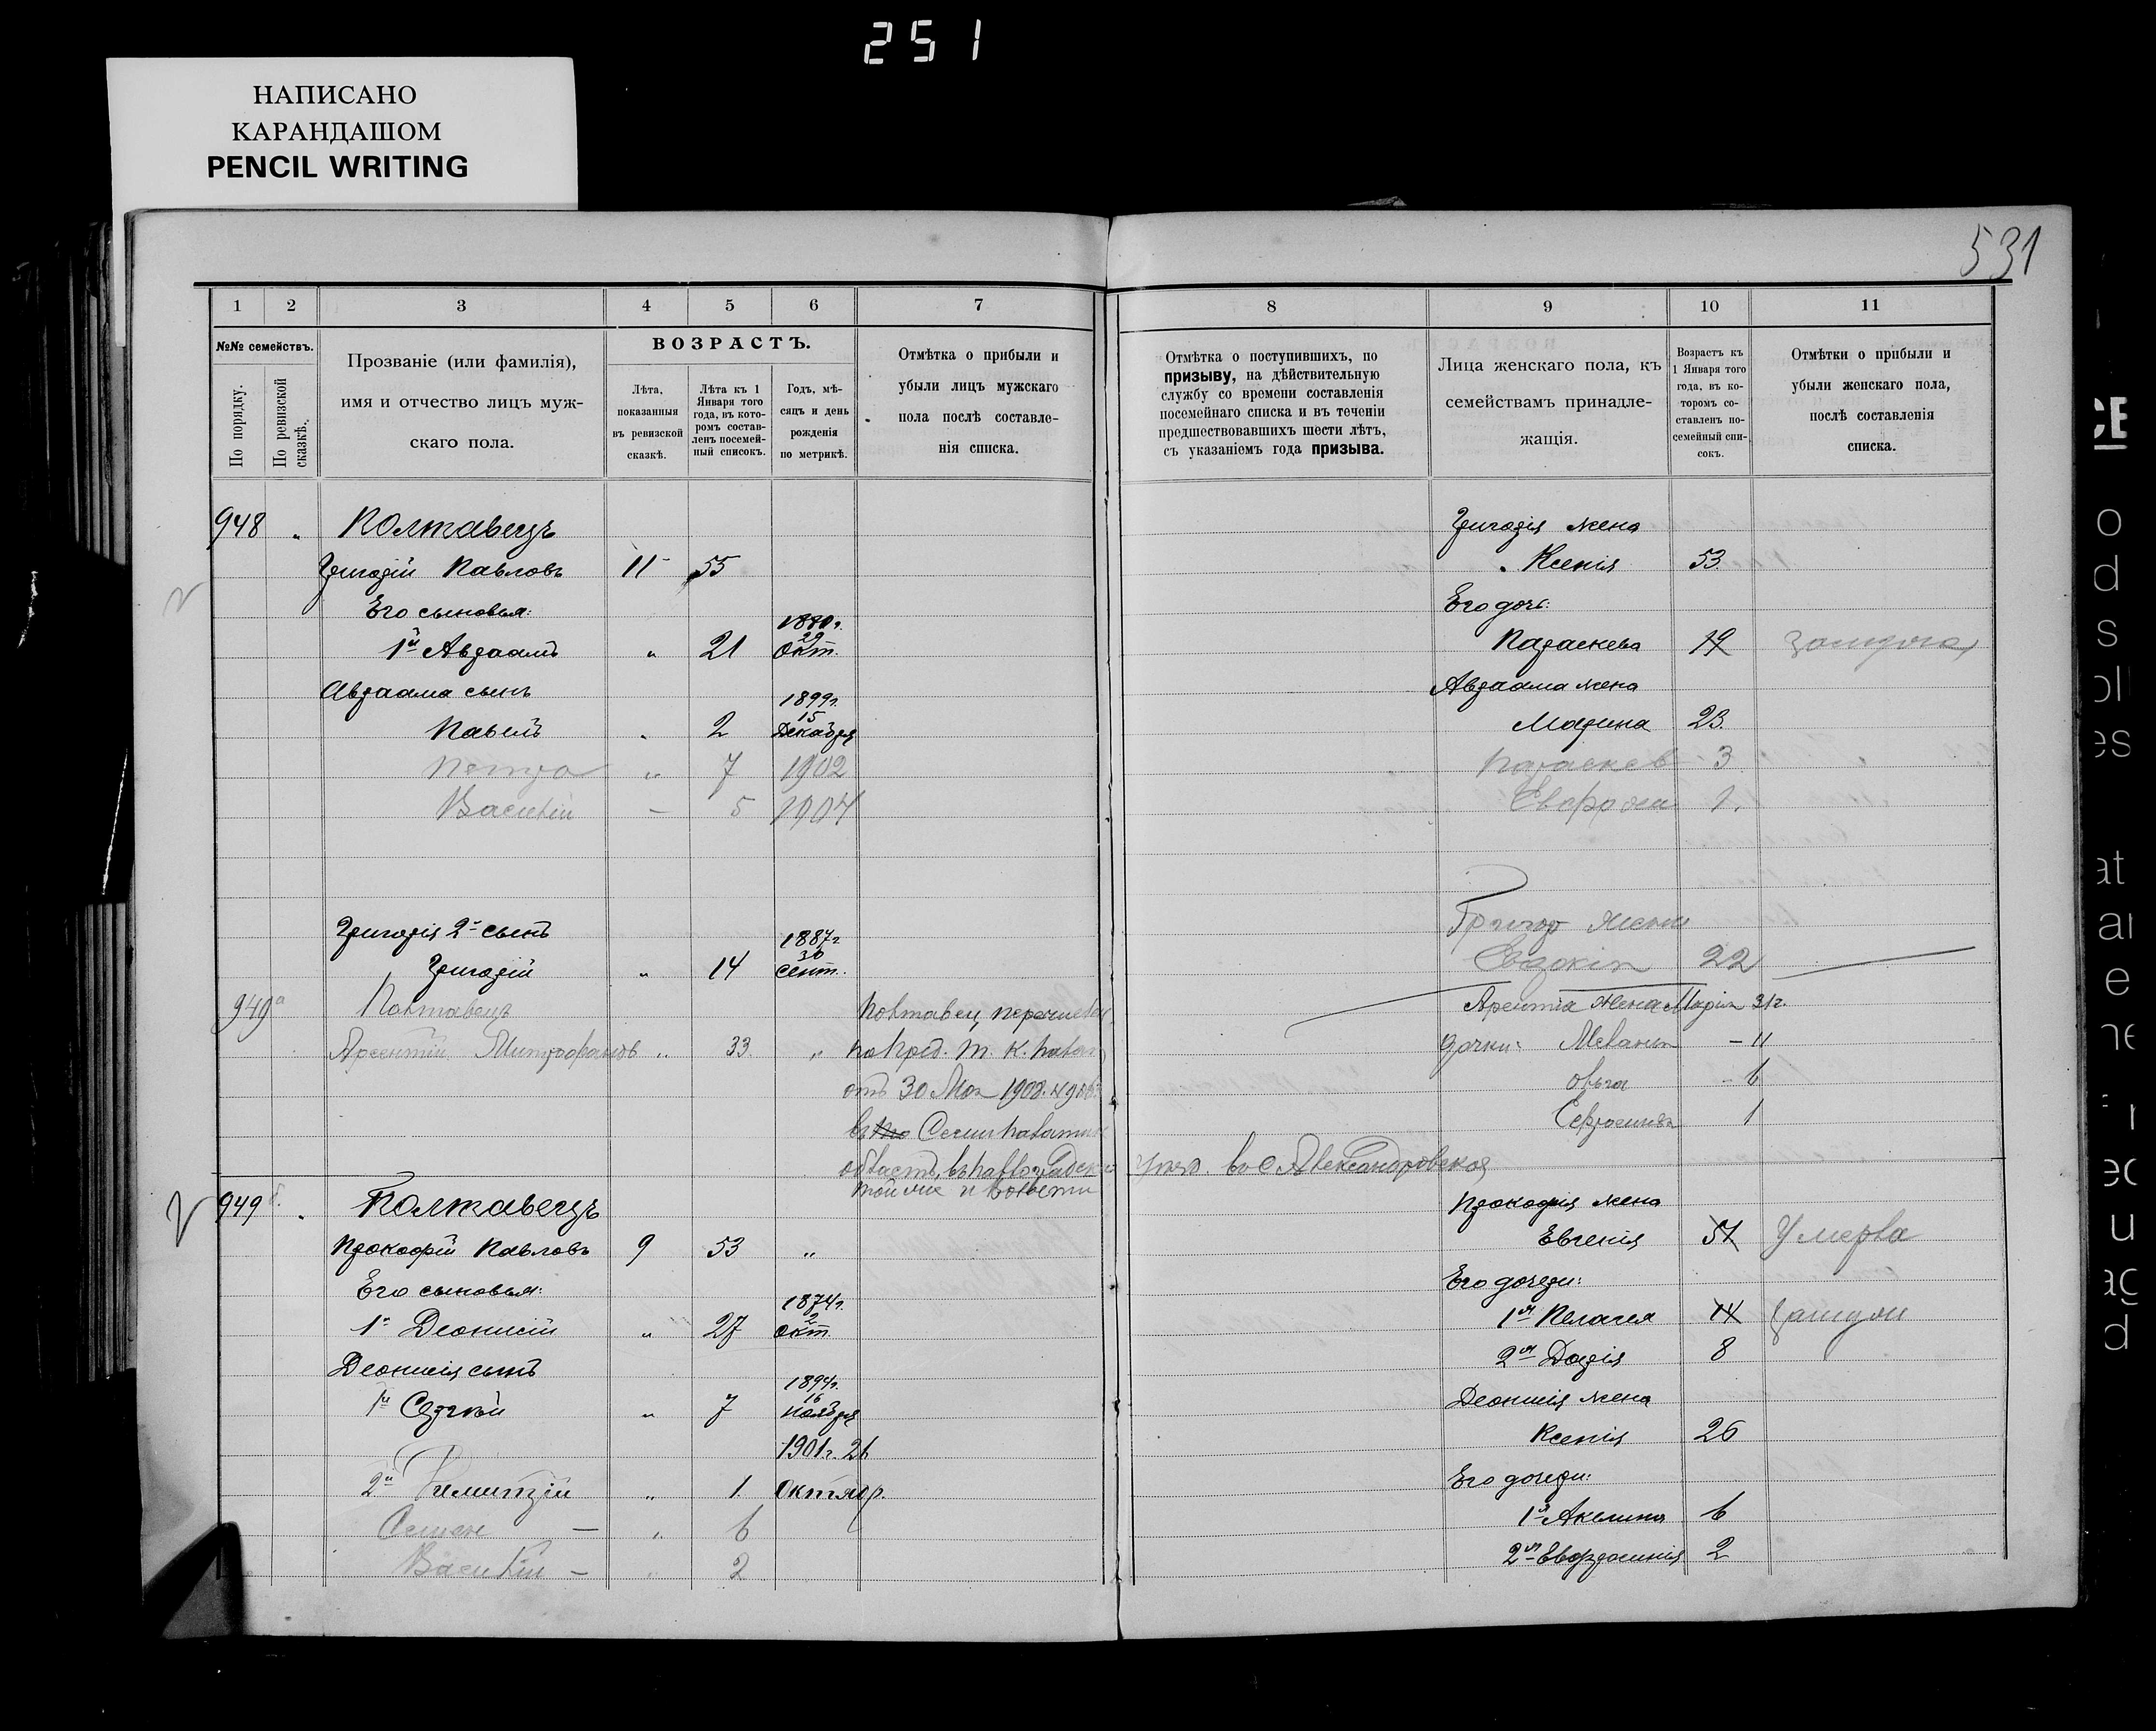 251
НАПИСАНО
КАРАНДАШОМ
PENCIL WRITING
531
1 2 3 4 5 6 7
№№ семействъ.
По порядку.
По ревизской сказкѣ.
Прозваніе (или фамилія),
имя и отчество лицъ муж-
скаго пола.
ВОЗРАСТЪ.
Лѣта,
показанныя
въ ревизской
сказкѣ.
Лѣта къ 1
Января того
года, въ кото-
ромъ состав-
ленъ посемей-
ный списокъ.
Годъ, мѣ-
сяцъ и день
рожденія
по метрикѣ.
Отмѣтка о прибыли и
убыли лицъ мужскаго
пола послѣ составле-
нія списка.
948 " Полтавецъ
Григорій Павловъ 11 55
Его сыновья:
1880г.
1й Авраамъ " 21 29 Окт.
Авраама сынъ
1899г.
Павелъ " 2 15 Декабря
Петро " 7 1902
Василій — 5 1904
Григорія 2й сынъ
1887г
Григорій " 14 30 Сент.
949а Полтавецъ
Арсентій Митрофановъ " 33 "
Полтавец перечислен
по пред. Т. К. Палат
отъ 30 Мая 1908.
въ Семипалатин
область, въ Павлоградск
той же волости
949б. " Полтавецъ
Прокофій Павловъ 9 53 "
Его сыновья:
1874г.
1й Деонисій " 27 2 Окт.
Деонисія сынъ
1894г.
1й Сергѣй " 7 16 Ноября
1901г. 21
2й Димитрій " 1. Октябр.
Семен — " 6
Василій — " 2
8 9 10 11
Отмѣтка о поступившихъ, по
призыву, на дѣйствительную
службу со времени составленія
посемейнаго списка и въ теченіи
предшествовавшихъ шести лѣтъ,
съ указаніемъ года призыва.
Лица женскаго пола, къ
семействамъ принадле-
жащія.
Возрастъ къ
1 Января того
года, въ ко-
торомъ со-
ставленъ по-
семейный спи-
сокъ.
Отмѣтки о прибыли и
убыли женскаго пола,
послѣ составленія
списка.
Григорія жена
Ксенія 53
Его дочь:
Параскева 19 замужем
Авраама жена
Марина 23.
Параскев 3
Евфроси 1.
Григор жена
Евдокія 22
Арентія жена Марія 31г.
дочки: Меланія – 11
Ольга – 6
Ефросинія 1
уѣзд. в с Александровской
Прокофія жена
Евгенія 51 Умерла
Его дочери:
1я Пелагея 14 Замуж
2я Дарія 8
Деонисія жена
Ксенія 26
Его дочери:
1я Акелина 6
2я Евфросинія 2